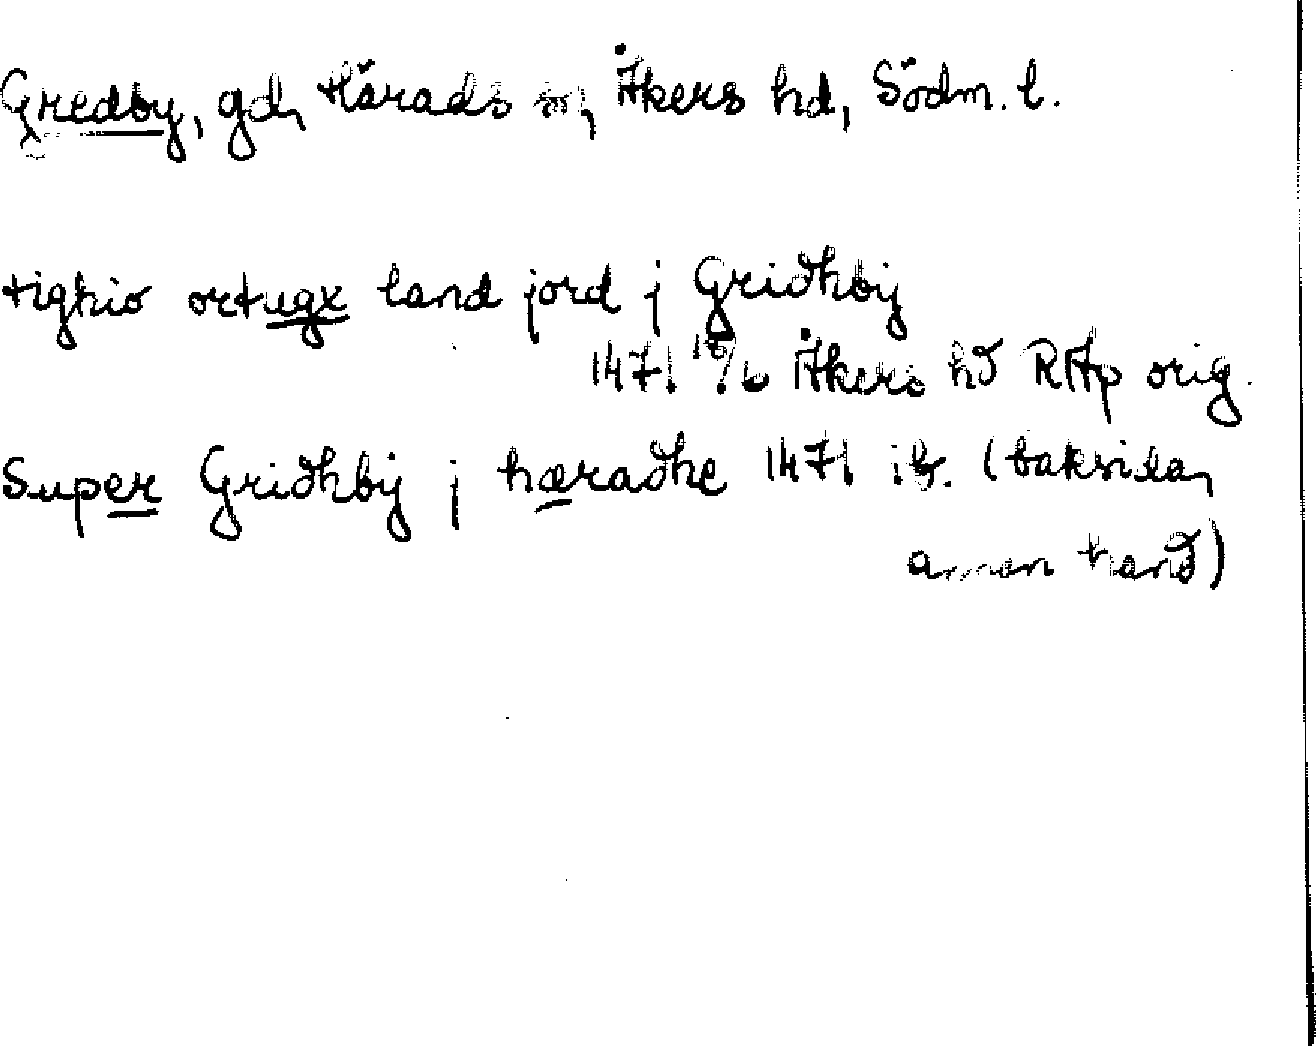 Gredby, gd, Härads sn, Åkers hd, Södm. l.
tighio ortugx land jord j Gridhbÿ
1471 16/6 Åkers hd RAp orig.
Super Gridhbÿ j hæradhe 1471 ib. (baksidan,
annan hand)